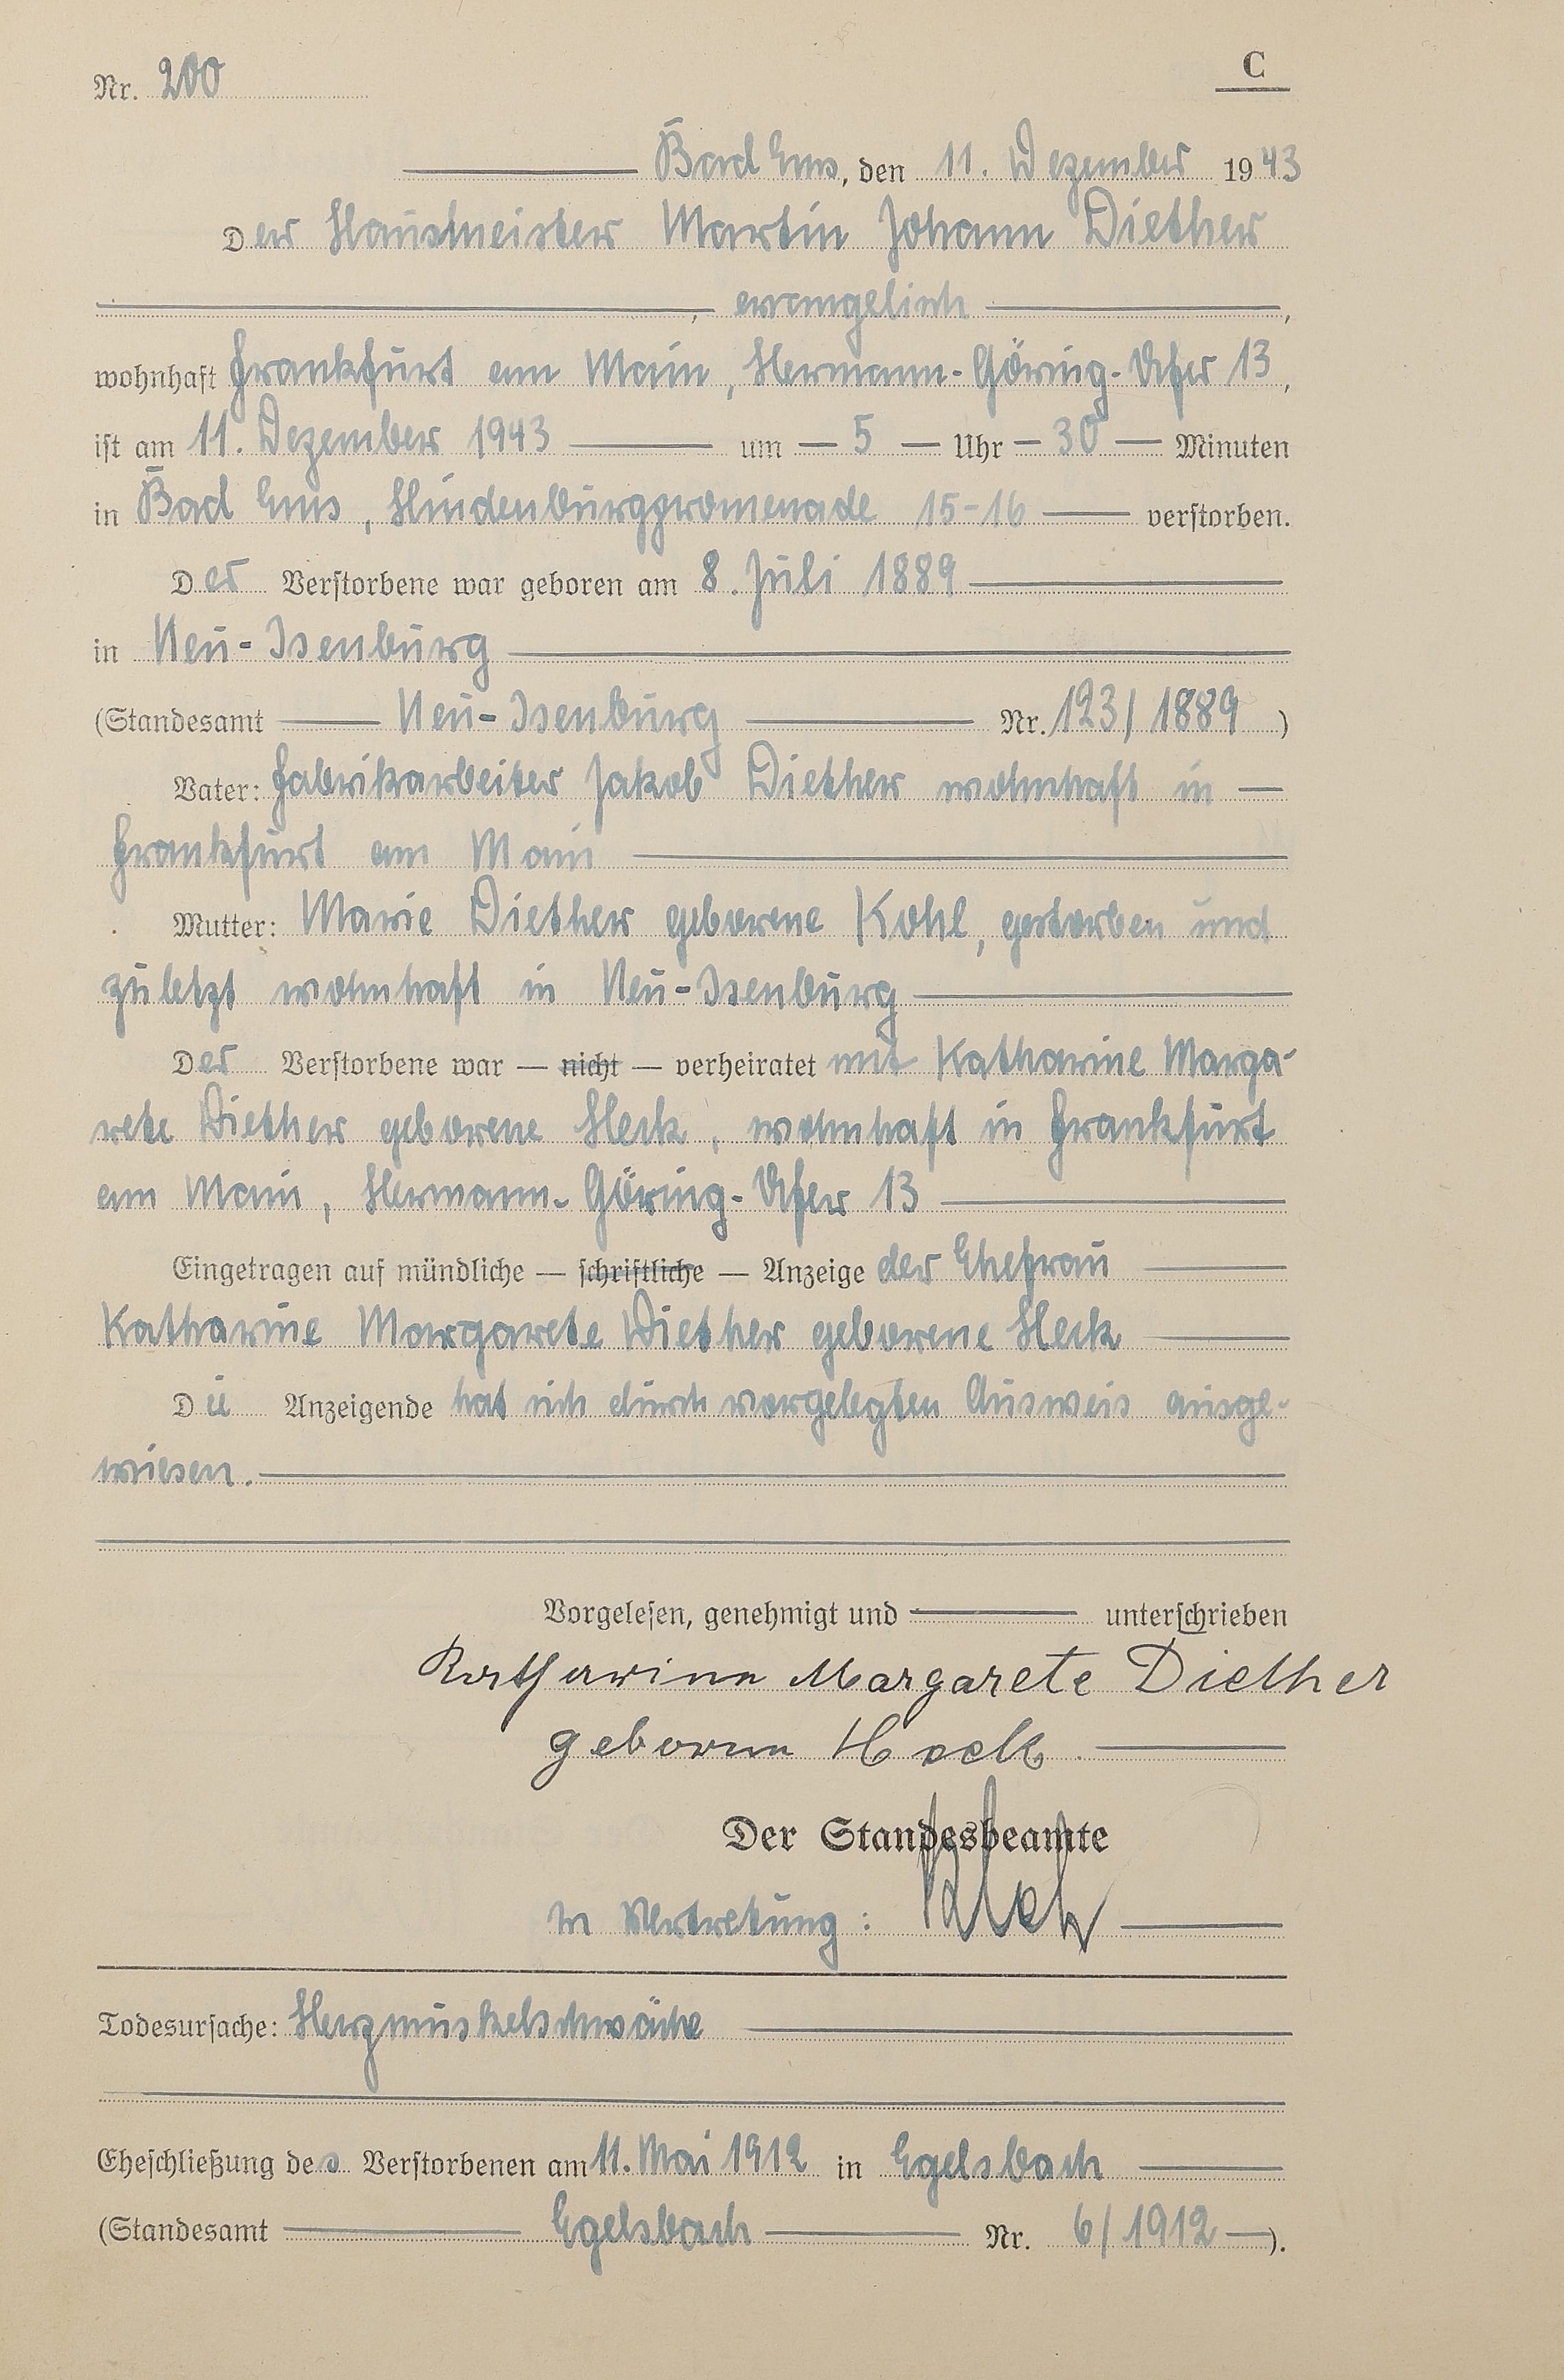 Nr. 200
C
Bad Ems, den 11. Dezember 1943
Der Hausmeister Martin Johann Diether
, evangelisch ,
wohnhaft Frankfurt am Main, Hermann-Göring-Ufer 13,
ist am 11. Dezember 1943 um — 5 — Uhr — 30 — Minuten
in Bad Ems, Hindenburgpromenade 15-16 verstorben.
Der Verstorbene war geboren am 8. Juli 1889
in Neu-Isenburg
(Standesamt Neu-Isenburg Nr. 123/1889)
Vater: Fabrikarbeiter Jakob Diether wohnhaft in
Frankfurt am Main
Mutter: Marie Diether geborene Kohl, gestorben und
zuletzt wohnhaft in Neu-Isenburg
Der Verstorbene war — nicht — verheiratet mit Katharine Marga-
rete Diether geborene Heck, wohnhaft in Frankfurt
am Main, Hermann-Göring-Ufer 13
Eingetragen auf mündliche — schriftliche — Anzeige der Ehefrau
Katharine Margarete Diether geborene Heck
Die Anzeigende hat sich durch vorgelegten Ausweis ausge-
wiesen.
Vorgelesen, genehmigt und unterschrieben
Katharine Margarete Diether
geborne Heck
Der Standesbeamte
In Vertretung:
Todesursache: Herzmuskelschwäche
Eheschließung des Verstorbenen am 11. Mai 1912 in Egelsbach
(Standesamt Egelsbach Nr. 6/1912).